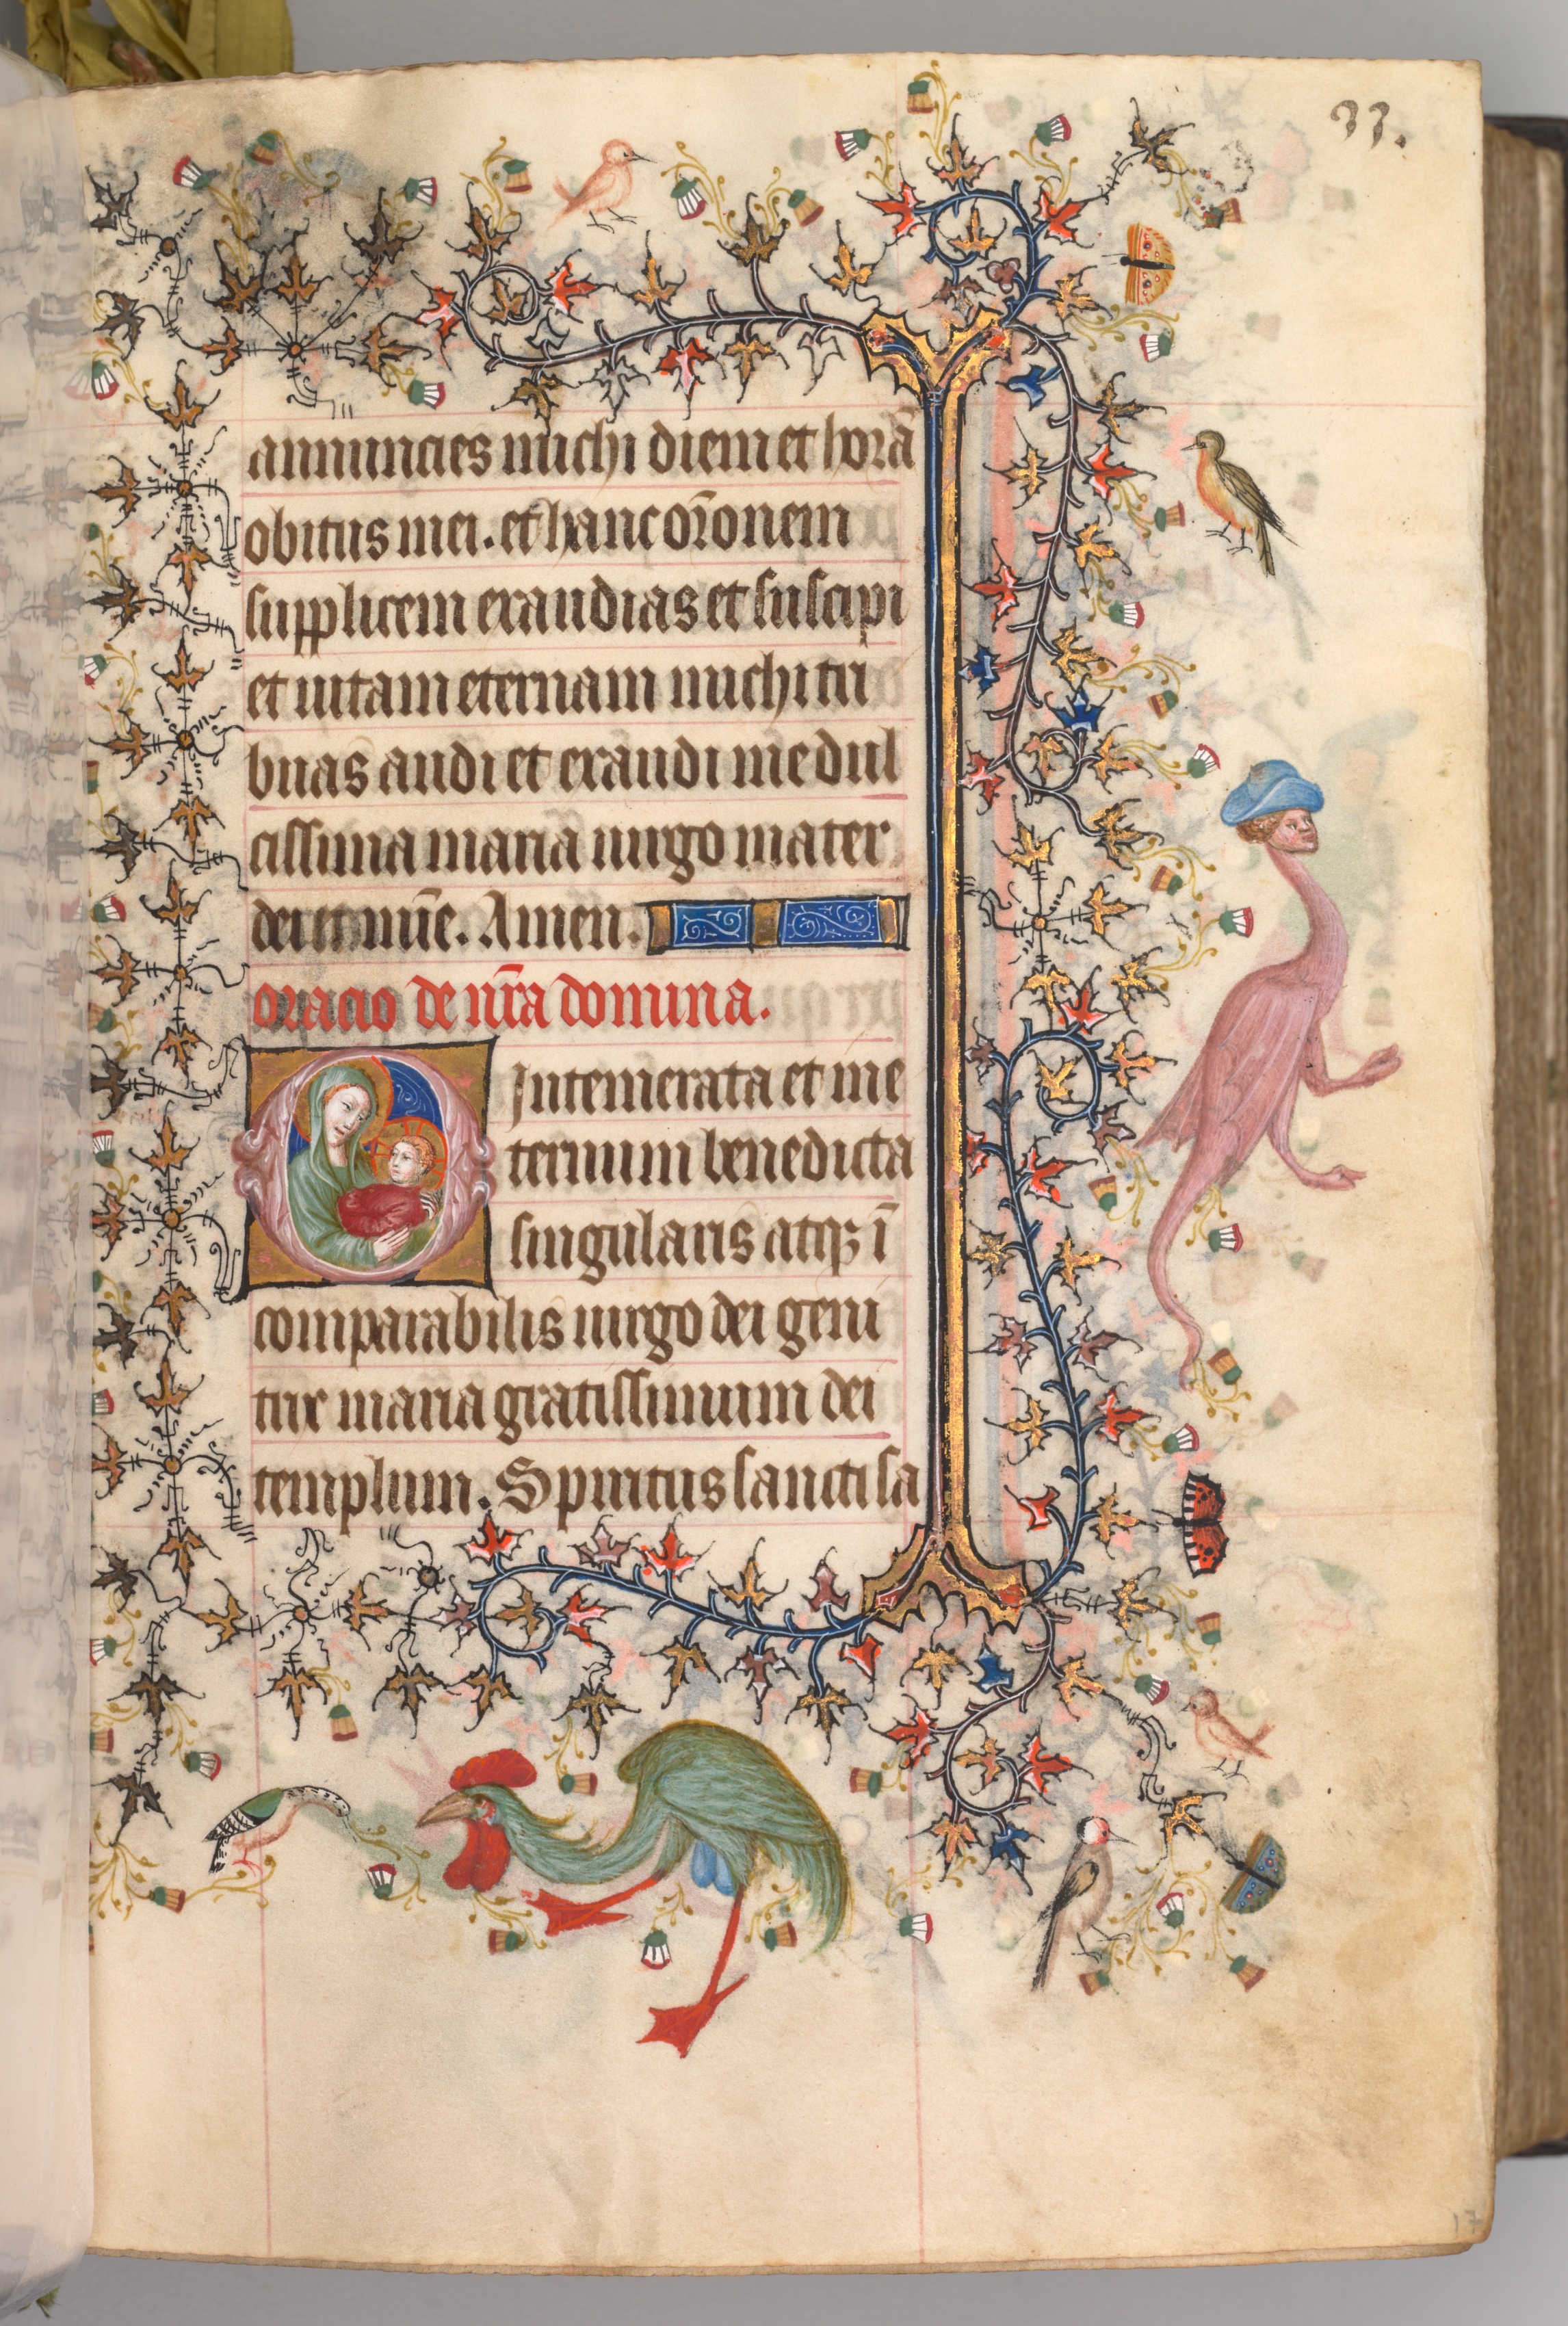 33.
annuncies michi diem et horā
obitus mei. et hanc or̄onem
supplicem exaudias et suscipi
et uitam eternam michi tri
buas audi et exaudi me dul
cissima maria uirgo mater
dei et mīe. Amen.
oracio de nr̄a domina.
O Intemerata et me
ternum benedicta
singularis atqꝫ ī
comparabilis uirgo dei geni
trix maria gratissimum dei
templum. Spiritus sancti sa
17